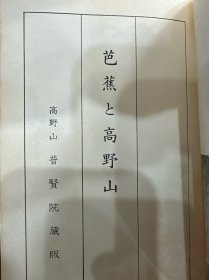 芭蕉と高野山
高野山 普賢院藏版